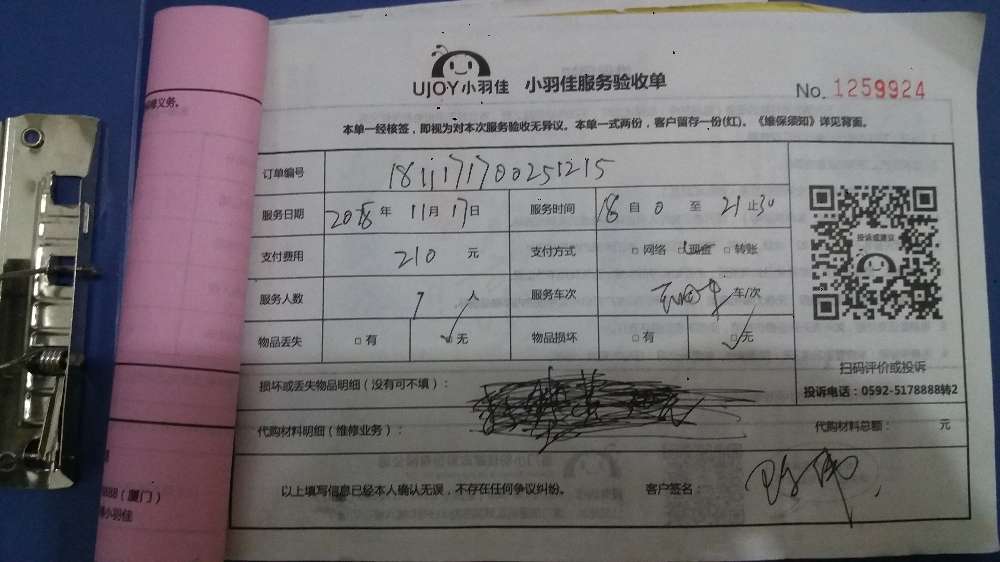 UJOY小羽佳 小羽佳服务验收单
No. 1259924
本单一经核签，即视为对本次服务验收无异议。本单一式两份，客户留存一份(红)。《维保须知》详见背面。
订单编号 1811171700251215
服务日期 2018年 11月 17日 服务时间 18自0至21止30
支付费用 210 元 支付方式 □网络 □现金 □转账
服务人数 1 人 服务车次 车/次
物品丢失 □有 □无 物品损坏 □有 □无
投诉或建议
扫码评价或投诉
投诉电话：0592-5178888转2
损坏或丢失物品明细（没有可不填）：
代购材料明细（维修业务）： 代购材料总额： 元
以上填写信息已经本人确认无误，不存在任何争议纠纷。 客户签名：
修义务。
888（厦门）
小羽佳